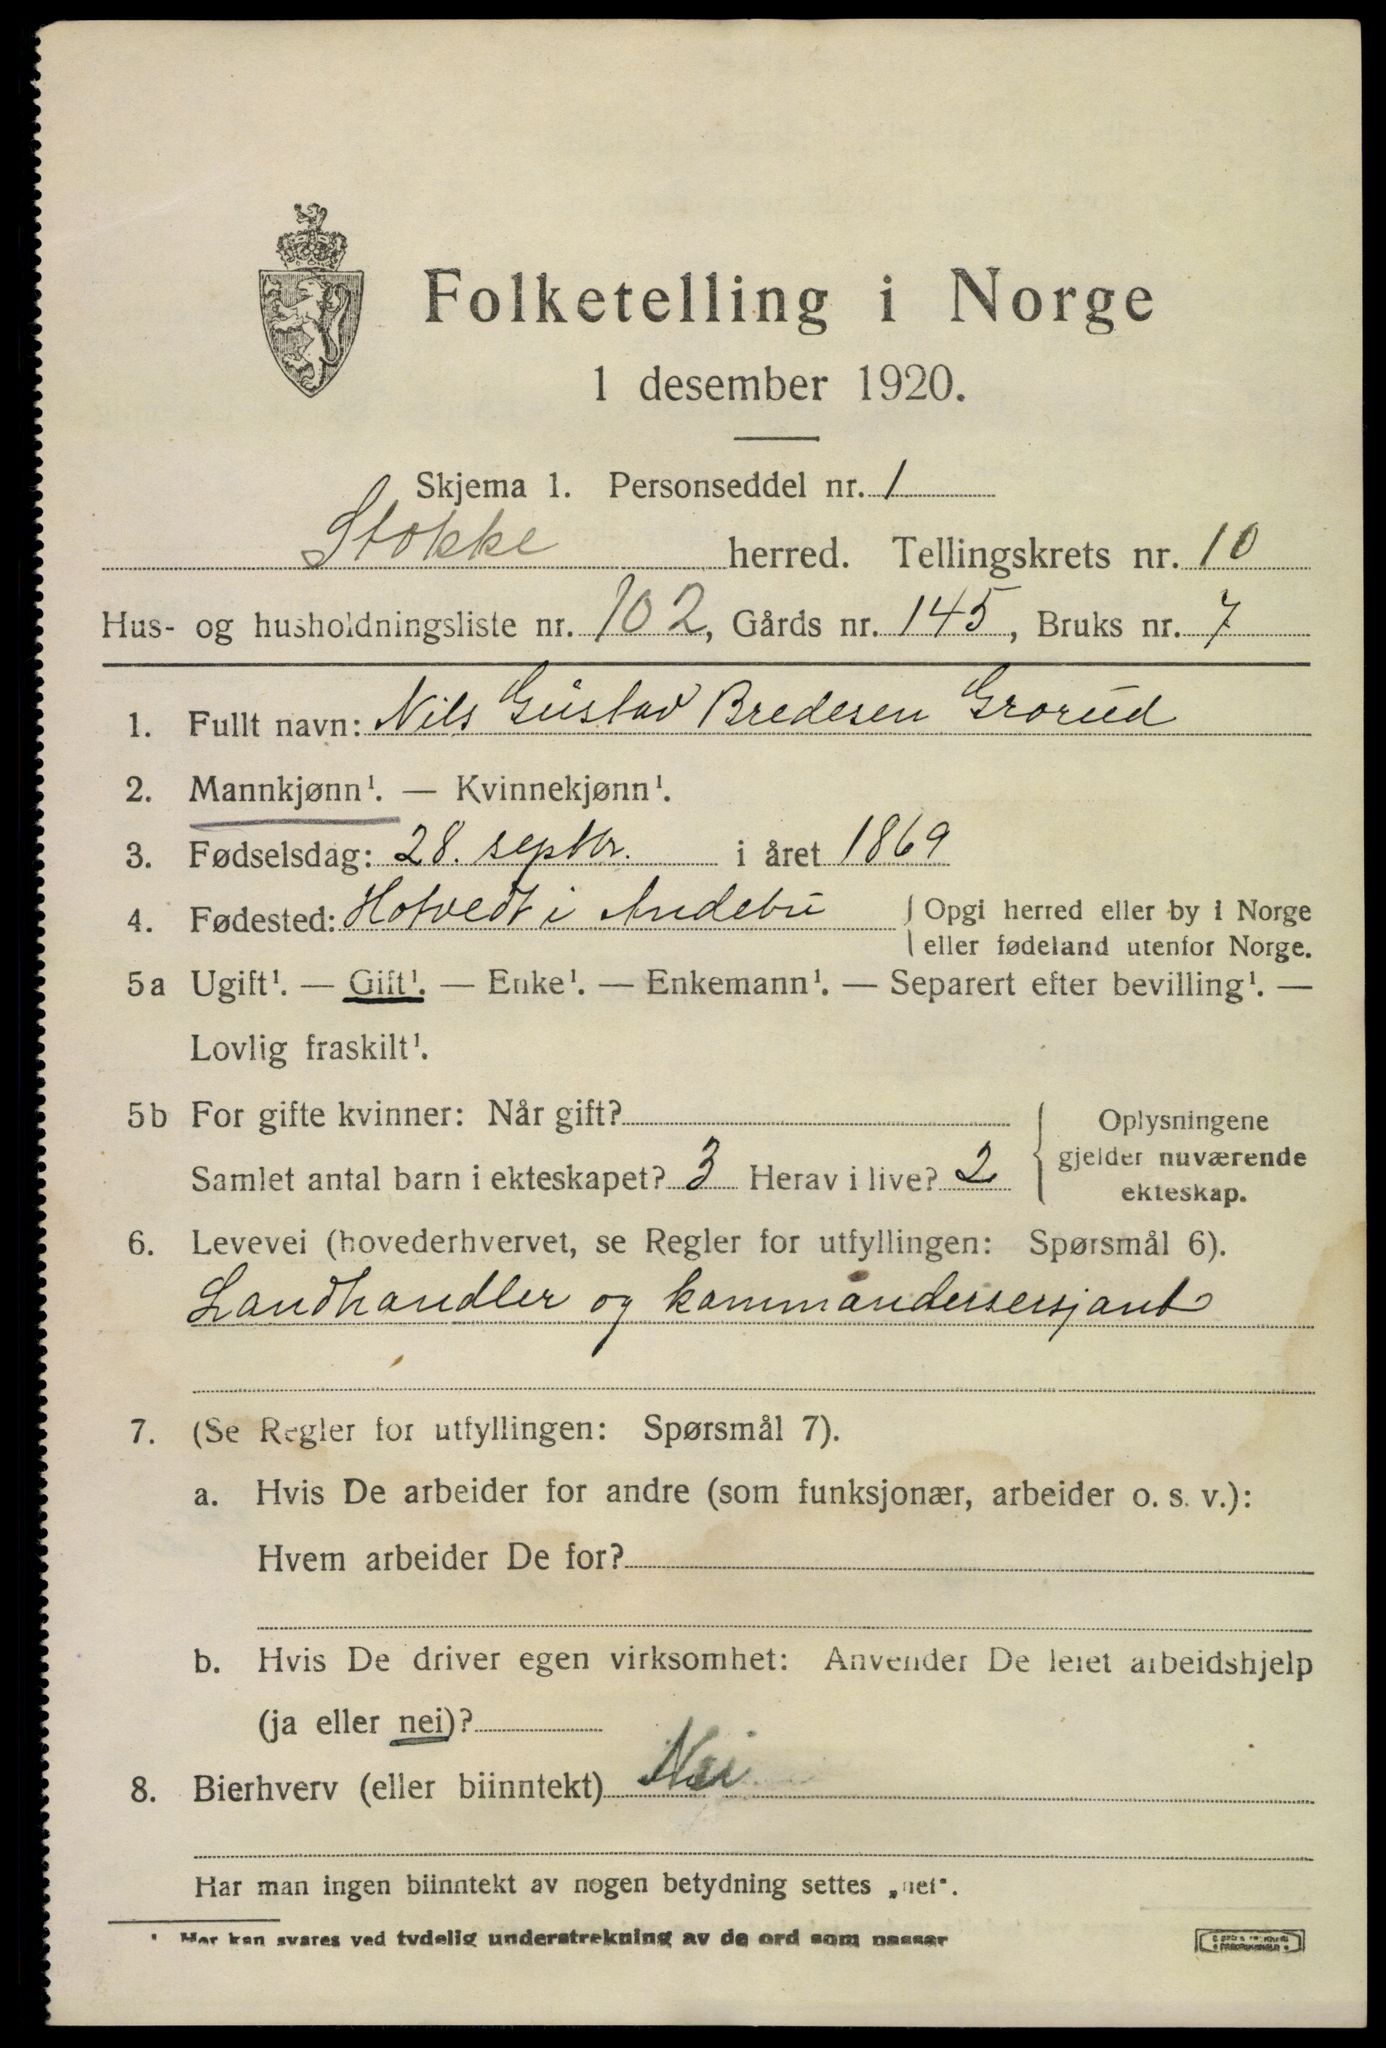 Folketelling i Norge
1 desember 1920.
Skjema 1. Personseddel nr. 1
Stokke herred. Tellingskrets nr. 10
Hus- og husholdningsliste nr. 102, Gårds nr. 145, Bruks nr. 7
1. Fullt navn: Nils Gustav Bredesen Grorud
2. Mannkjønn¹. — Kvinnekjønn¹.
3. Fødselsdag: 28. septbr. i året 1869
4. Fødested: Hotvedt i Andebu
Opgi herred eller by i Norge
eller fødeland utenfor Norge.
5a Ugift¹. — Gift¹. — Enke¹. — Enkemann¹. — Separert efter bevilling¹. —
Lovlig fraskilt¹.
5b For gifte kvinner: Når gift?
Samlet antal barn i ekteskapet? 3 Herav i live? 2
Oplysningene
gjelder nuværende
ekteskap.
6. Levevei (hovederhvervet, se Regler for utfyllingen: Spørsmål 6).
Landhandler og kommandersersjant
7. (Se Regler for utfyllingen: Spørsmål 7).
a. Hvis De arbeider for andre (som funksjonær, arbeider o. s. v.):
Hvem arbeider De for?
b. Hvis De driver egen virksomhet: Anvender De leiet arbeidshjelp
(ja eller nei)?
8. Bierhverv (eller biinntekt) Nei
Har man ingen biinntekt av nogen betydning settes „nei“.
¹ Her kan svares ved tydelig understrekning av de ord som passer